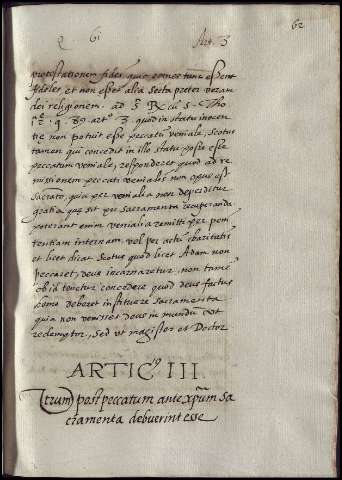 Q 61 Art. 3 62
protestationem fidei, quia omnes tunc essent
fideles et non esset alia secta preter veram
dei religionem. ad 5m Rx cū S. Tho
1ª 2ę. q. 89. artº 3. quod in statu inocen
tię non potuit esse peccatū veniale, Scotus
tamen qui concedit in illo statu posse esse
peccatum veniale, responderet quod ad re
missionem peccati venialis non opus est
sacramto, quia per venialia non deperditur
gratia quę sit per sacramenta recuperanda
poterant enim venialia remitti per peni
tentiam internam, vel per actū charitatis
et licet dicat Scotus quod licet Adam non
peccaret, deus incarnaretur, non tamē
ob id tenetur concedere quod deus factus
homo deberet instituere sacramenta
quia non venisset deus in mundū ut
redemptor, sed ut magister et Doctor
ARTIC19 III.
Utrum post peccatum ante xpūm sa
cramenta debuerint esse